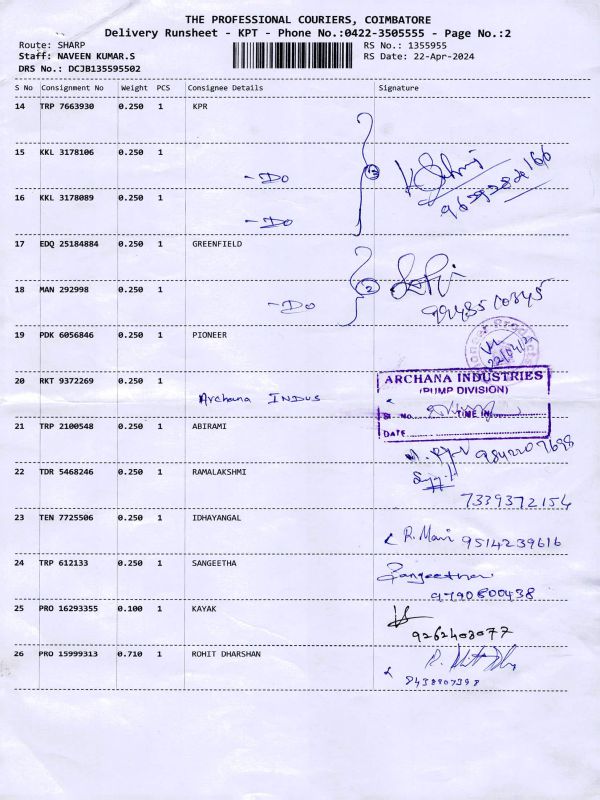 THE PROFESSIONAL COURIERS, COIMBATORE
Delivery Runsheet - KPT - Phone No.:0422-3505555 - Page No.:2
Route: SHARP RS No.: 1355955
Staff: NAVEEN KUMAR.S RS Date: 22-Apr-2024
DRS No.: DCJB135595502
S No Consignment No Weight PCS Consignee Details Signature
14 TRP 7663930 0.250 1 KPR
15 KKL 3178106 0.250 1
- Do
16 KKL 3178089 0.250 1
- Do
17 EDQ 25184884 0.250 1 GREENFIELD
2
18 MAN 292998 0.250 1
- Do
19 PDK 6056846 0.250 1 PIONEER
22/04/24
20 RKT 9372269 0.250 1
Archana INDUS
ARCHANA INDUSTRIES
(PUMP DIVISION)
SI. No. TIME IN
DATE
21 TRP 2100548 0.250 1 ABIRAMI
9842207698
22 TDR 5468246 0.250 1 RAMALAKSHMI
7339372154
23 TEN 7725506 0.250 1 IDHAYANGAL
R. Mani 9514239616
24 TRP 612133 0.250 1 SANGEETHA
Sangeetha
9790800438
25 PRO 16293355 0.100 1 KAYAK
9262403077
26 PRO 15999313 0.710 1 ROHIT DHARSHAN
8438807398